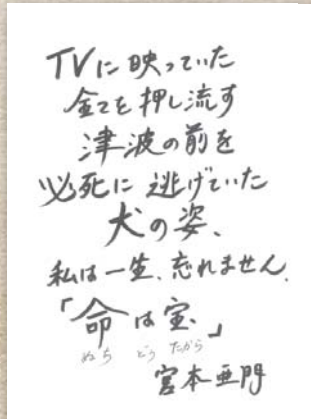 TVに映っていた
全てを押し流す
津波の前を
必死に逃げていた
犬の姿、
私は一生、忘れません。
「命は宝」
ぬち どう たから
宮本亜門